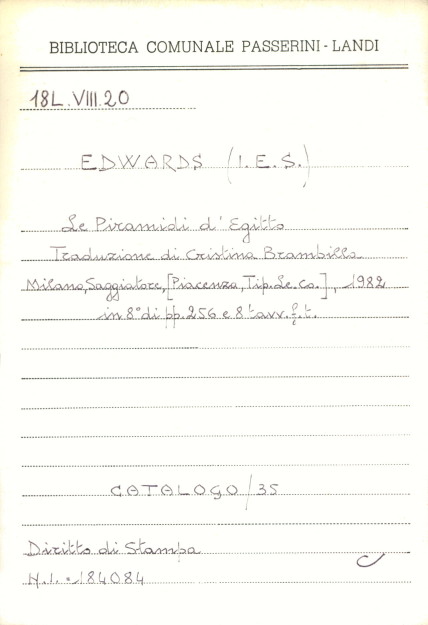 BIBLIOTECA COMUNALE PASSERINI - LANDI
18L.VIII.20
EDWARDS (I.E.S.)
Le Piramidi d'Egitto
Traduzione di Cristina Brambilla
Milano, Saggiatore, [Piacenza, Tip. Le. Co.], 1982
in 8° di pp. 256 e 8 tavv. f. t.
CATALOGO / 35
Diritto di Stampa
N.I. 184084